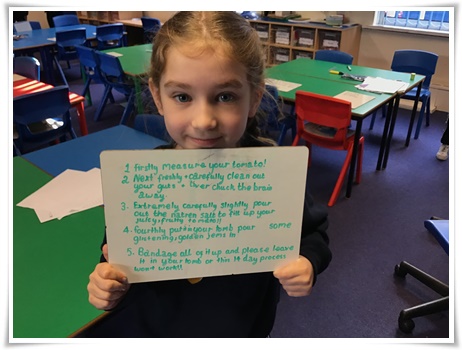 1 firstly measure your tomato!
2 Next freshly + carefully clean out
your guts + never chuck the brain
away.
3. Extremely carefully slightly pour
out the natren salt to fill up your
juicy, fruity tomato!!
4. fourthly put in your tomb some
glistening, golden jems in
5. Bandage all of it up and please leave
it in your tomb or this 14 day process
won't work!!